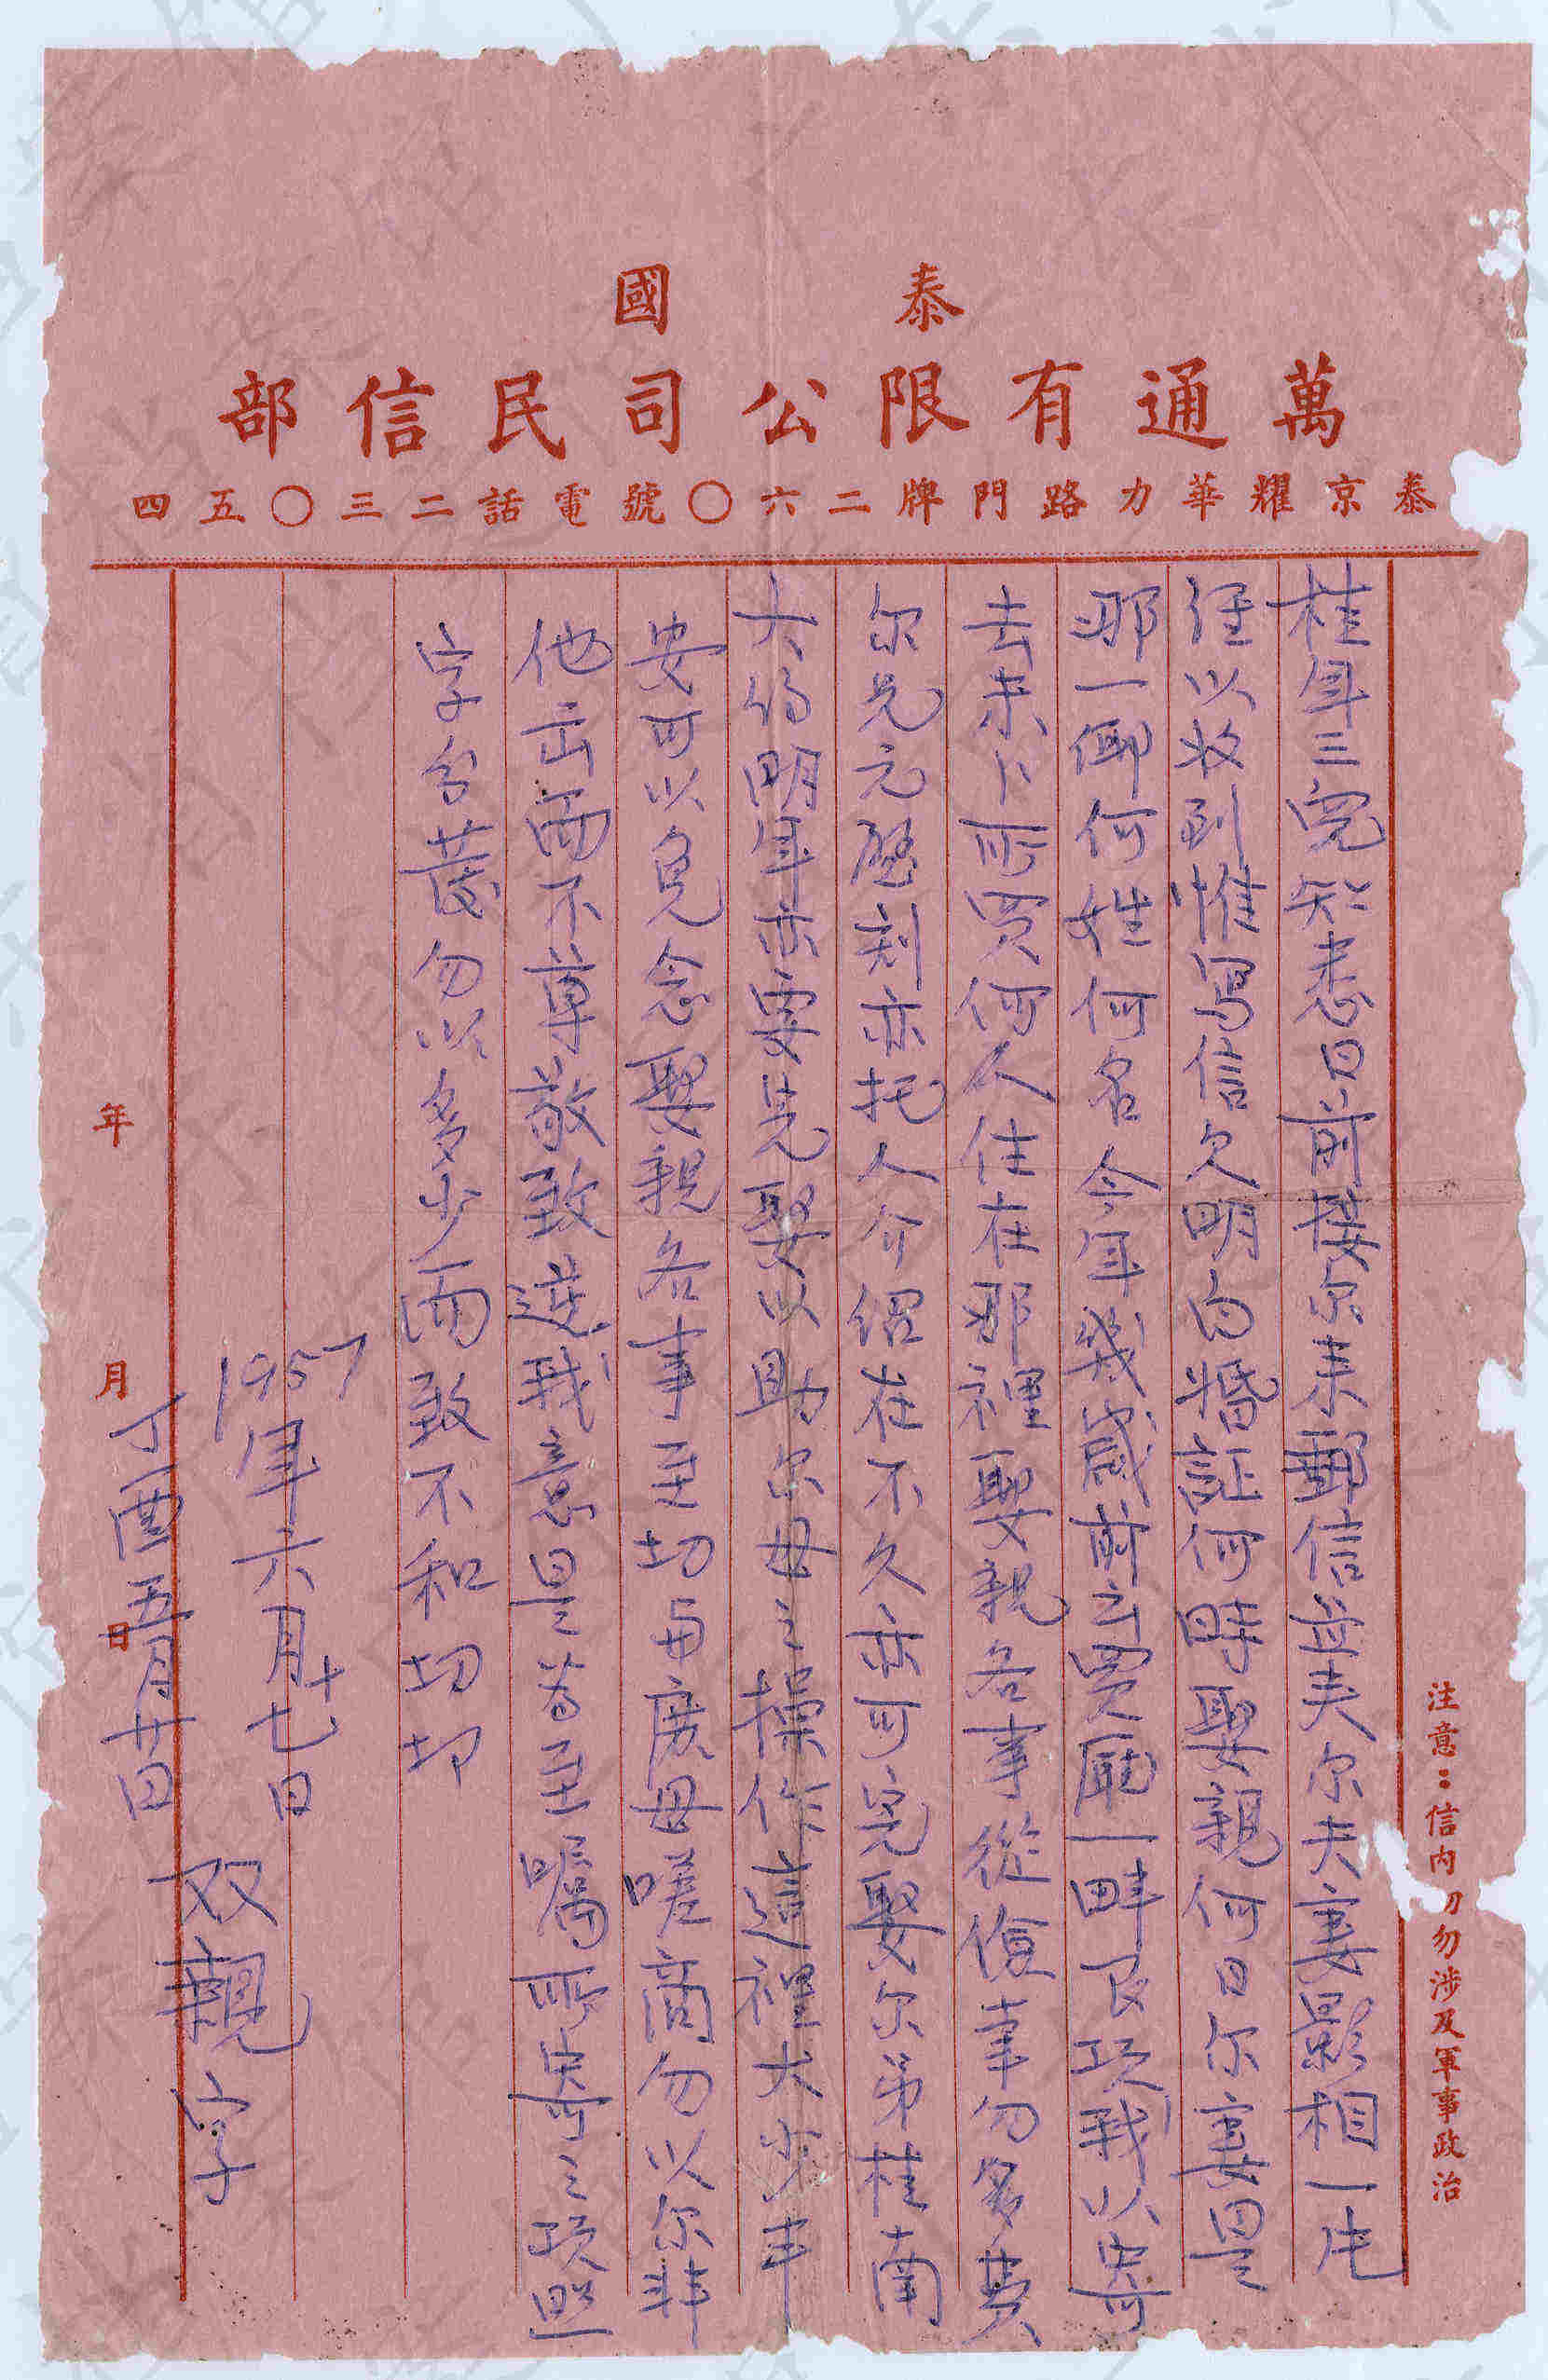 泰國
萬通有限公司民信部
泰京耀華力路門牌二六〇號電話二三〇五四
桂年三兒知悉日前接尔来郵信並夫尔夫妻影相一片
经以收到惟寫信欠明白婚証何時娶親何日尔妻是
那一鄉何姓何名今年幾歲前云買厝一畔艮項我以寄
去未卜所買何人住在那裡娶親各事從儉事勿多費
尔兄元啓刻亦托人介绍在不久亦可完娶尔弟桂南
大約明年亦要完娶以助尔母之操作這裡大少平
安可以免念娶親各事至切与庶母嗟商勿以尔非
他出而不尊敬致違我意是为至嘱所寄之項照
字分發勿以多少而致不和切切
1957年六月十七日
丁酉五月廿日
双親字
年
月
日
注意：信内切勿涉及軍事政治